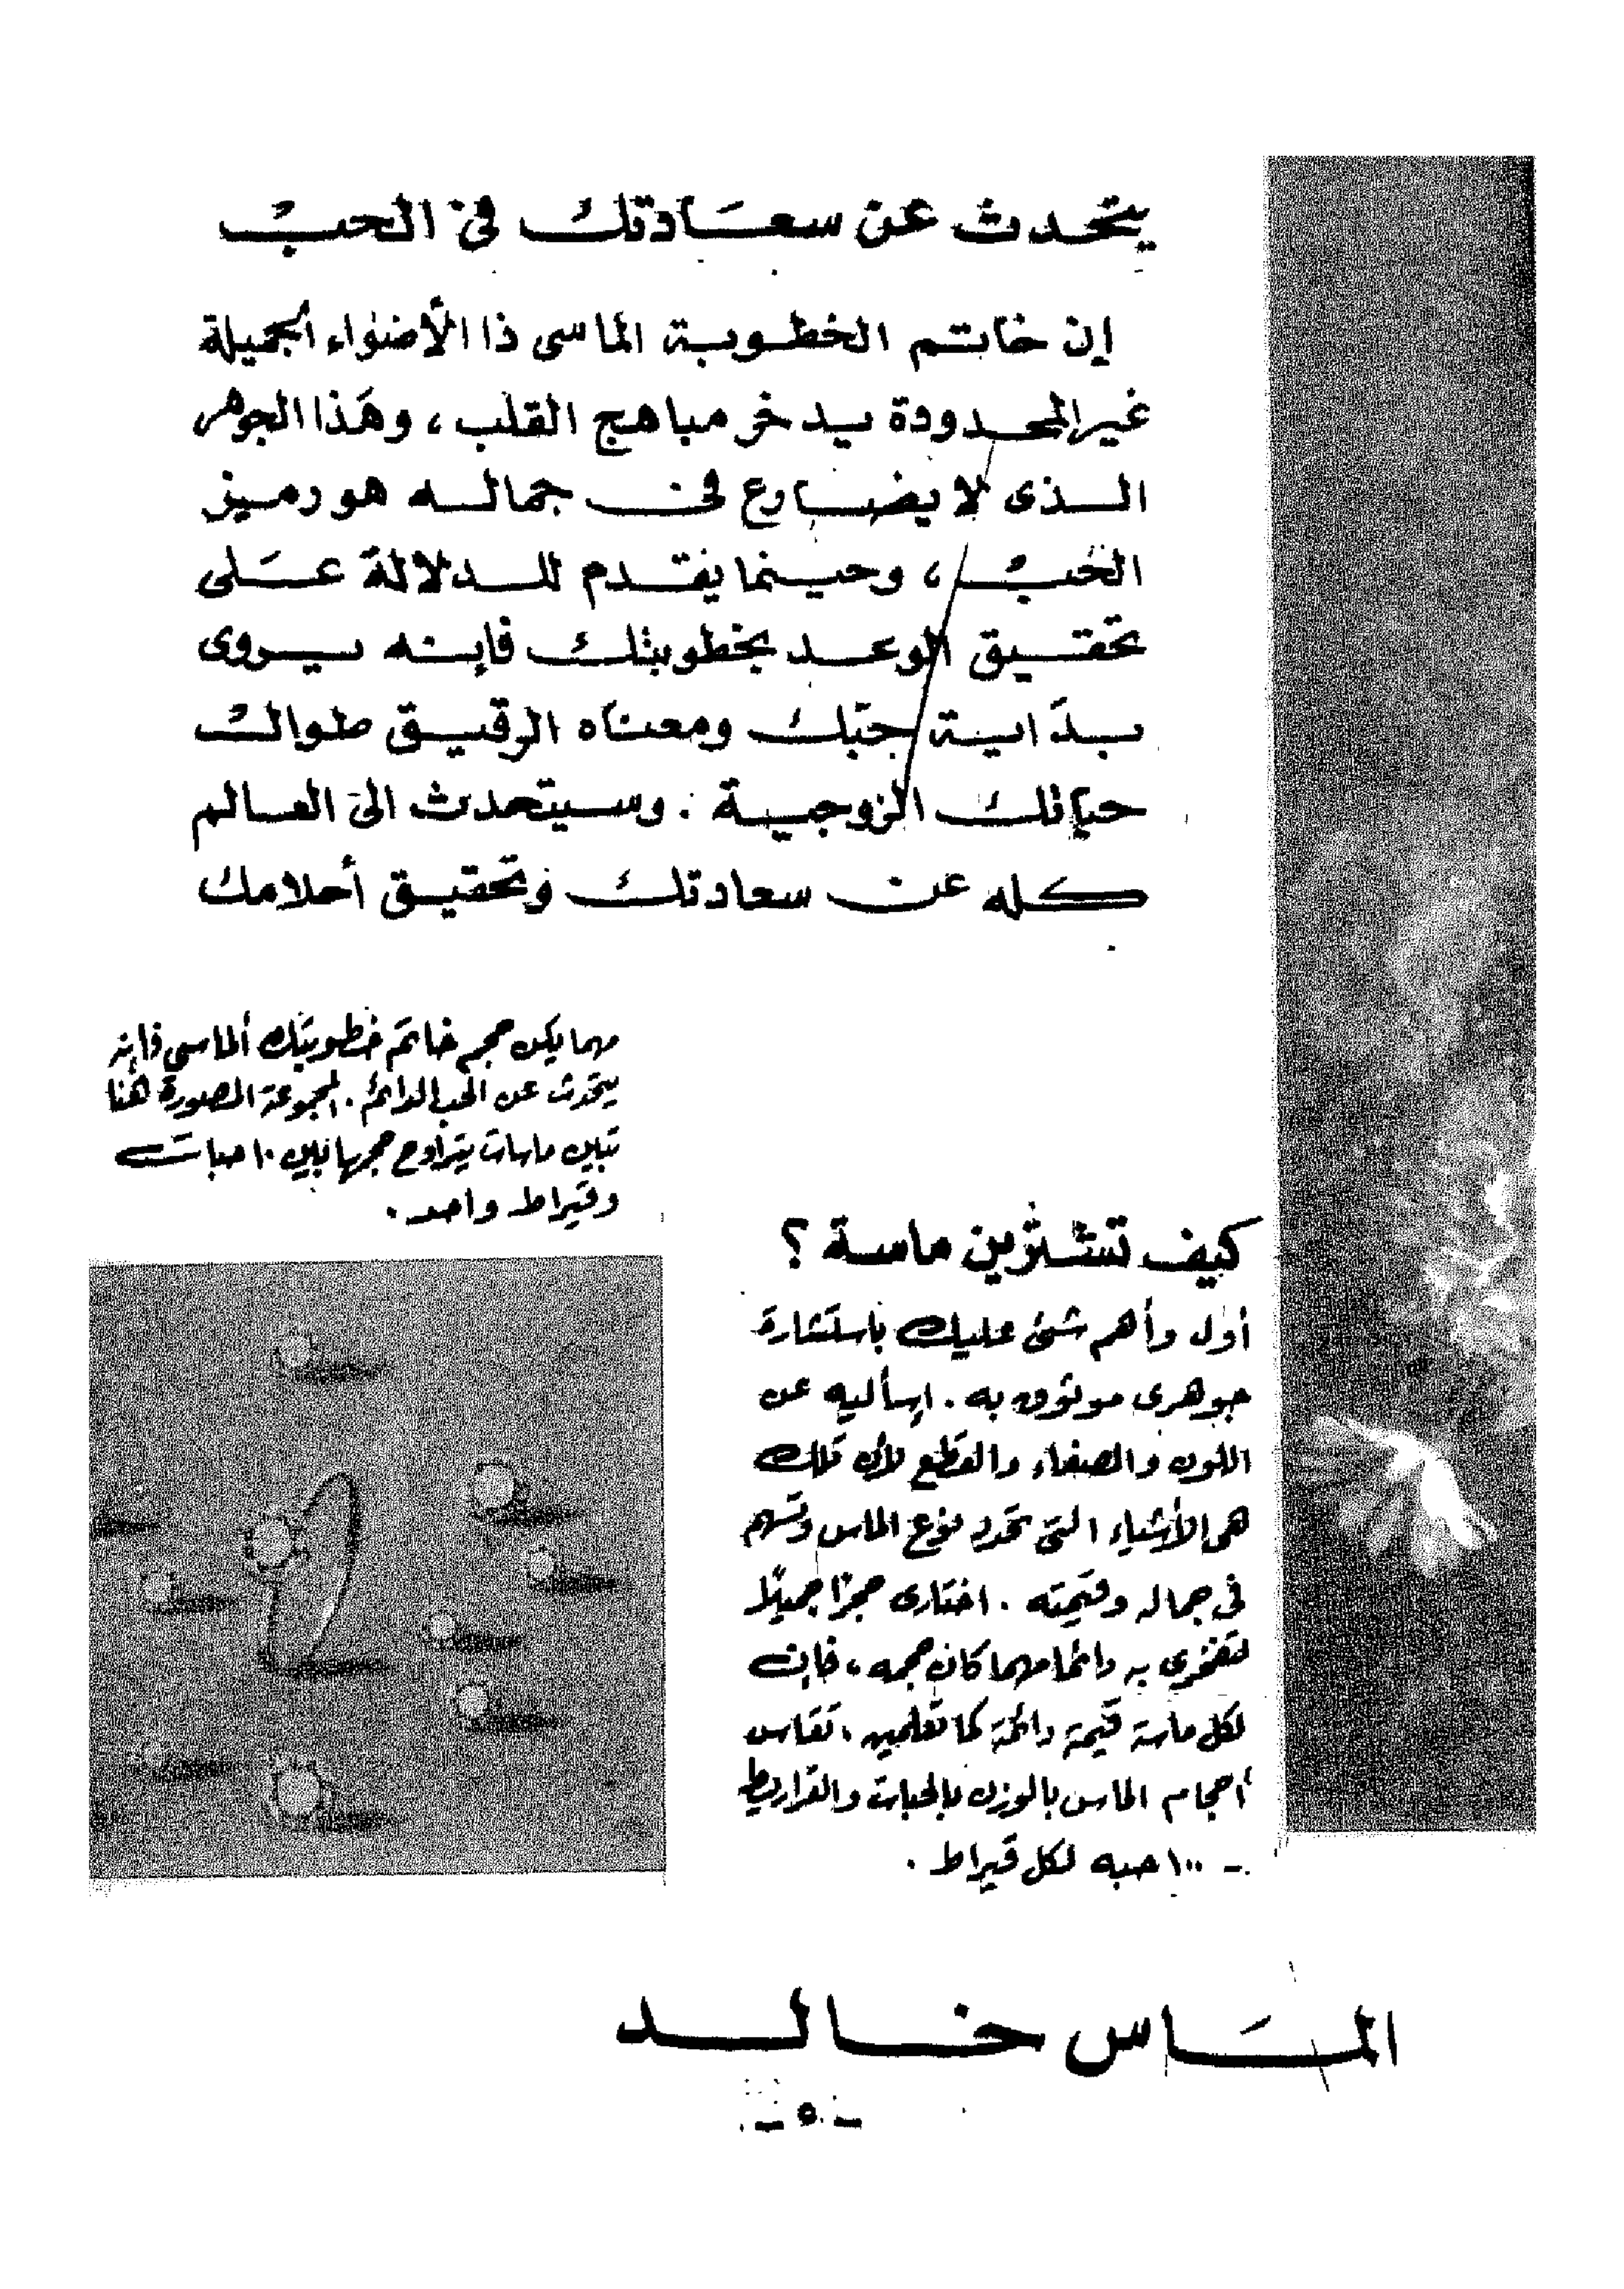 يتحدث عن سعادتك في الحب
إن خاتم الخطوبة الماسى ذا الأضواء الجميلة
غير المحدودة يدخر مباهج القلب ، وهذا الجوهر
الذى لا يضارع في جماله هو رمز
الحب ، وحينما يقدم للدلالة على
تحقيق الوعد بخطوبتك فإنه يروى
بداية حبك ومعناه الرقيق طوال
حياتك الزوجية . وسيتحدث الى العالم
كله عن سعادتك وتحقيق أحلامك
مهما يكن حجم خاتم خطوبتك الماسي فإنه
يتحدث عن الحب الدائم . المجموعة المصورة هنا
تبين ماسات يتراوح حجمها بين ١٠ حبات
وقيراط واحد .
كيف تشترين ماسة ؟
أول وأهم شئ عليك باستشارة
جوهرى موثوق به . إسأليه عن
اللون والصفاء والقطع لأن تلك
هى الأشياء التى تحدد نوع الماس وتسهم
في جماله وقيمته . اختارى حجرًا جميلًا
لتفخرى به دائما مهما كان حجمه ، فإن
لكل ماسة قيمة دائمة كما تعلمين ، تقاس
أحجام الماس بالوزن بالحبات والقراريط
- ١٠٠ حبه لكل قيراط .
الماس خالد
- ٥ -